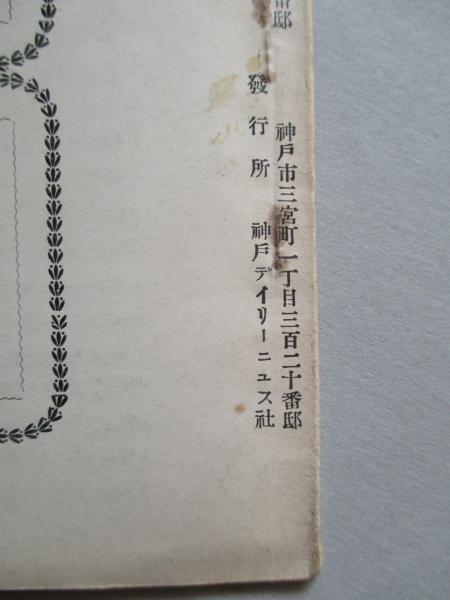 番邸
神戸市三宮町一丁目三百二十番邸
發行所 神戸デイリーニュス社